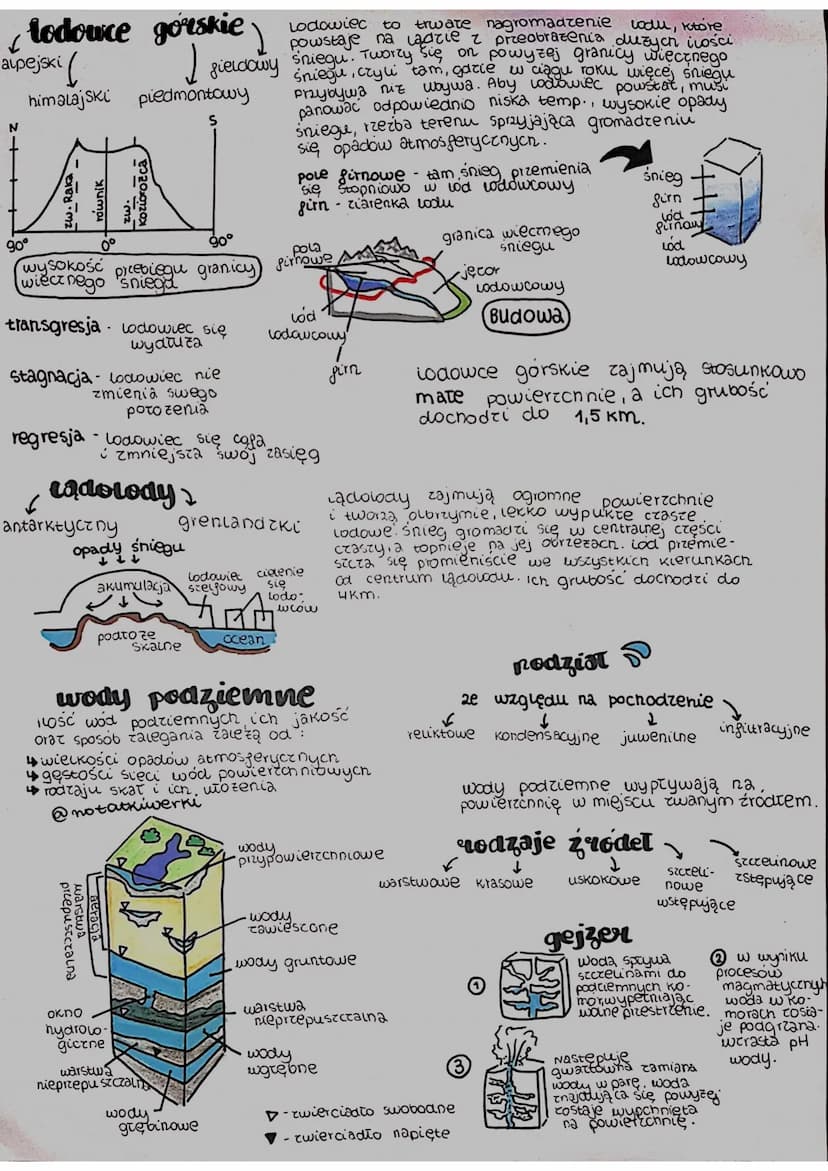 lodowce górskie
alpejski
himalajski
piedmontowy
fieldowy
Lodowiec to trwałe nagromadzenie lodu, które
powstaje na lądzie z przeobrażenia dużych ilości
śniegu. Tworzy się on powyżej granicy wiecznego
śniegu, czyli tam, gdzie w ciągu roku więcej śniegu
przybywa niż ubywa. Aby lodowiec powstał, musi
panować odpowiednio niska temp., wysokie opady
śniegu, rzeźba terenu sprzyjająca gromadzeniu
się opadów atmosferycznych.
pole firnowe - tam śnieg przemienia
się stopniowo w lód lodowcowy
firn - ziarenka lodu
śnieg
firn
lód
firnowy
lód
lodowcowy
N
S
zw. Raka
równik
zw.
Koziorożca
90°
0°
90°
wysokość przebiegu granicy
wiecznego śniegu
pola
firnowe
granica wiecznego
śniegu
jęzor
lodowcowy
lód
lodowcowy
firn
BUDOWA
transgresja - lodowiec się
wydłuża
stagnacja - lodowiec nie
zmienia swego
położenia
regresja - lodowiec się cofa
i zmniejsza swój zasięg
lodowce górskie zajmują stosunkowo
małe powierzchnie, a ich grubość
dochodzi do 1,5 km.
lądolody
antarktyczny
grenlandzki
opady śniegu
akumulacja
lodowiec
szelfowy
cielenie
się
lodo-
wców
podłoże
skalne
ocean
Lądolody zajmują ogromne powierzchnie
i tworzą olbrzymie, lekko wypukłe czasze
lodowe. Śnieg gromadzi się w centralnej części
czaszy, a topnieje na jej obrzeżach. Lód przemie-
szcza się promieniście we wszystkich kierunkach
od centrum lądolodu. Ich grubość dochodzi do
4km.
wody podziemne
ilość wód podziemnych, ich jakość
oraz sposób zalegania zależą od:
↳ wielkości opadów atmosferycznych
↳ gęstości sieci wód powierzchniowych
↳ rodzaju skał i ich ułożenia
@notatkiwerki
podział
ze względu na pochodzenie
reliktowe
kondensacyjne
juwenilne
infiltracyjne
wody podziemne wypływają na
powierzchnię w miejscu zwanym źródłem.
rodzaje źródeł
warstwowe
krasowe
uskokowe
szczeli-
nowe
wstępujące
szczelinowe
zstępujące
wody
przypowierzchniowe
warstwa
przepuszczalna
aeracja
wody
zawieszone
wody gruntowe
okno
hydrolo-
giczne
warstwa
nieprzepuszczalna
wody
wgłębne
warstwa
nieprzepuszczalna
wody
głębinowe
▽ - zwierciadło swobodne
▼ - zwierciadło napięte
gejzer
1
woda spływa
szczelinami do
podziemnych ko-
mór, wypełniając
wolne przestrzenie.
2 w wyniku
procesów
magmatycznych
woda w ko-
morach zosta-
je podgrzana.
wzrasta pH
wody.
3
Następuje
gwałtowna zamiana
wody w parę. woda
znajdująca się powyżej
zostaje wypchnięta
na powierzchnię.